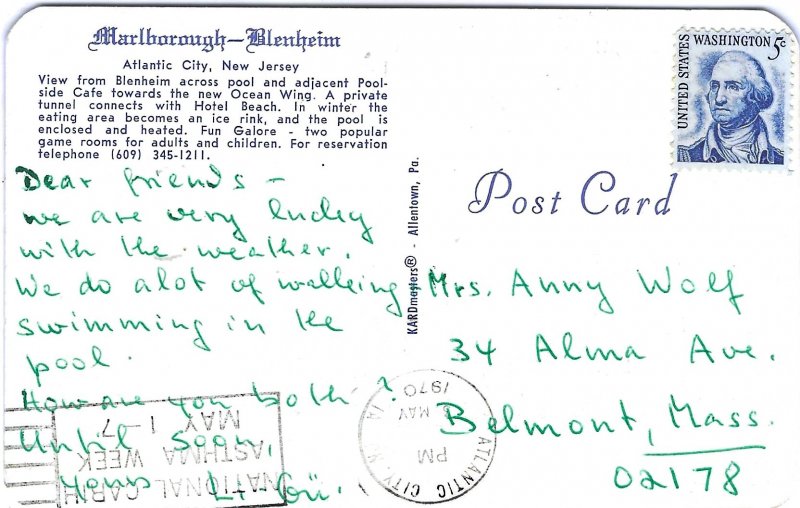 Marlborough-Blenheim
Atlantic City, New Jersey
View from Blenheim across pool and adjacent Pool-
side Cafe towards the new Ocean Wing. A private
tunnel connects with Hotel Beach. In winter the
eating area becomes an ice rink, and the pool is
enclosed and heated. Fun Galore - two popular
game rooms for adults and children. For reservation
telephone (609) 345-1211.
Dear friends -
we are very lucky
with the weather.
We do alot of walking
swimming in the
pool.
How are you both?
Until soon,
Yours
KARDmasters® - Allentown, Pa.
UNITED STATES
WASHINGTON 5c
Post Card
Mrs. Anny Wolf
34 Alma Ave.
Belmont, Mass.
02178
ATLANTIC CITY,
PM
MAY
1970
NATIONAL
ASTHMA WEEK
MAY 1-7